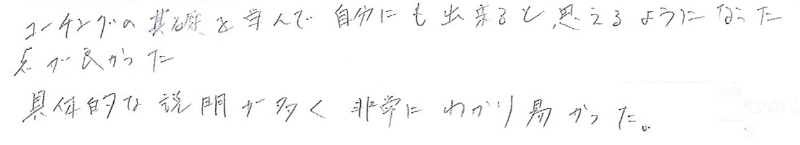 コーチングの基礎を学んで自分にも出来ると思えるようになった
点が良かった
具体的な説明が多く非常にわかり易かった。